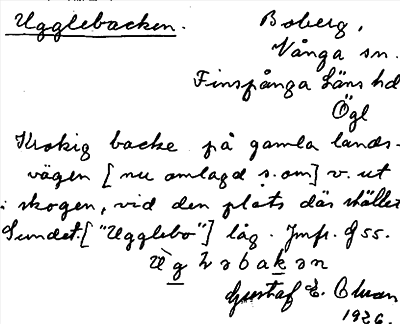 Ugglebacken.
Boberg,
Vånga sn.
Finspånga Läns hd
Ögl
Krokig backe på gamla lands-
vägen [nu omlagd s. om] v. ut
i skogen, vid den plats där stället
Sundet. ["Ugglebo"] låg. Jmfr. G 55.
Gustaf E.
1926.